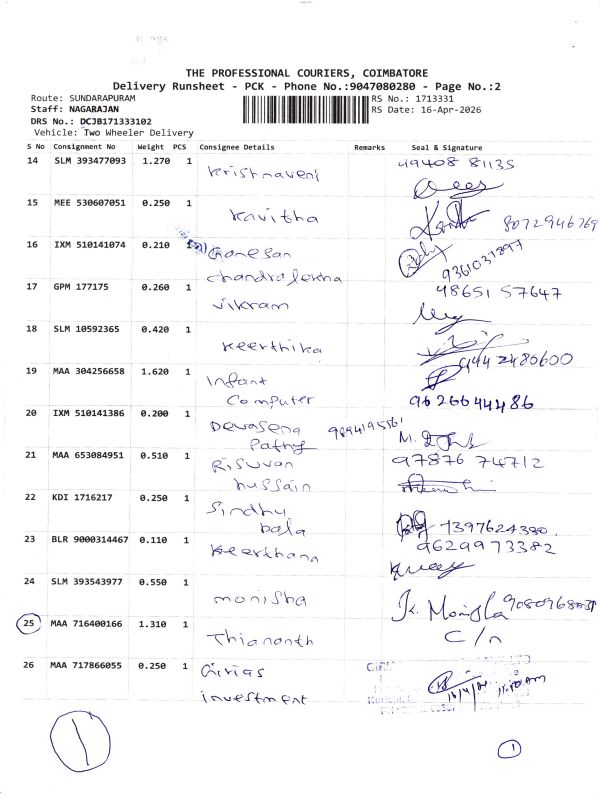 THE PROFESSIONAL COURIERS, COIMBATORE
Delivery Runsheet - PCK - Phone No.:9047080280 - Page No.:2
Route: SUNDARAPURAM
RS No.: 1713331
Staff: NAGARAJAN
RS Date: 16-Apr-2026
DRS No.: DCJB171333102
Vehicle: Two Wheeler Delivery
S No Consignment No Weight PCS Consignee Details Remarks Seal & Signature
14 SLM 393477093 1.270 1 Krishnaveni 49408 81135
15 MEE 530607051 0.250 1 Kavitha 8072946769
16 IXM 510141074 0.210 1 Ganesan 9361031897
chandralekha
17 GPM 177175 0.260 1 Vikram 48651 57647
18 SLM 10592365 0.420 1 Keerthika 9442480600
19 MAA 304256658 1.620 1 Infant
Computer 9626644486
20 IXM 510141386 0.200 1 Devasena
Pathy
21 MAA 653084951 0.510 1 Risuvan 97876 74712
hussain
22 KDI 1716217 0.250 1 Sindhu
bala 7397624380
23 BLR 9000314467 0.110 1 Keerthana 9629973382
24 SLM 393543977 0.550 1 monisha
25 MAA 716400166 1.310 1 Thiananth C/n
26 MAA 717866055 0.250 1 Girias
investment
1
1